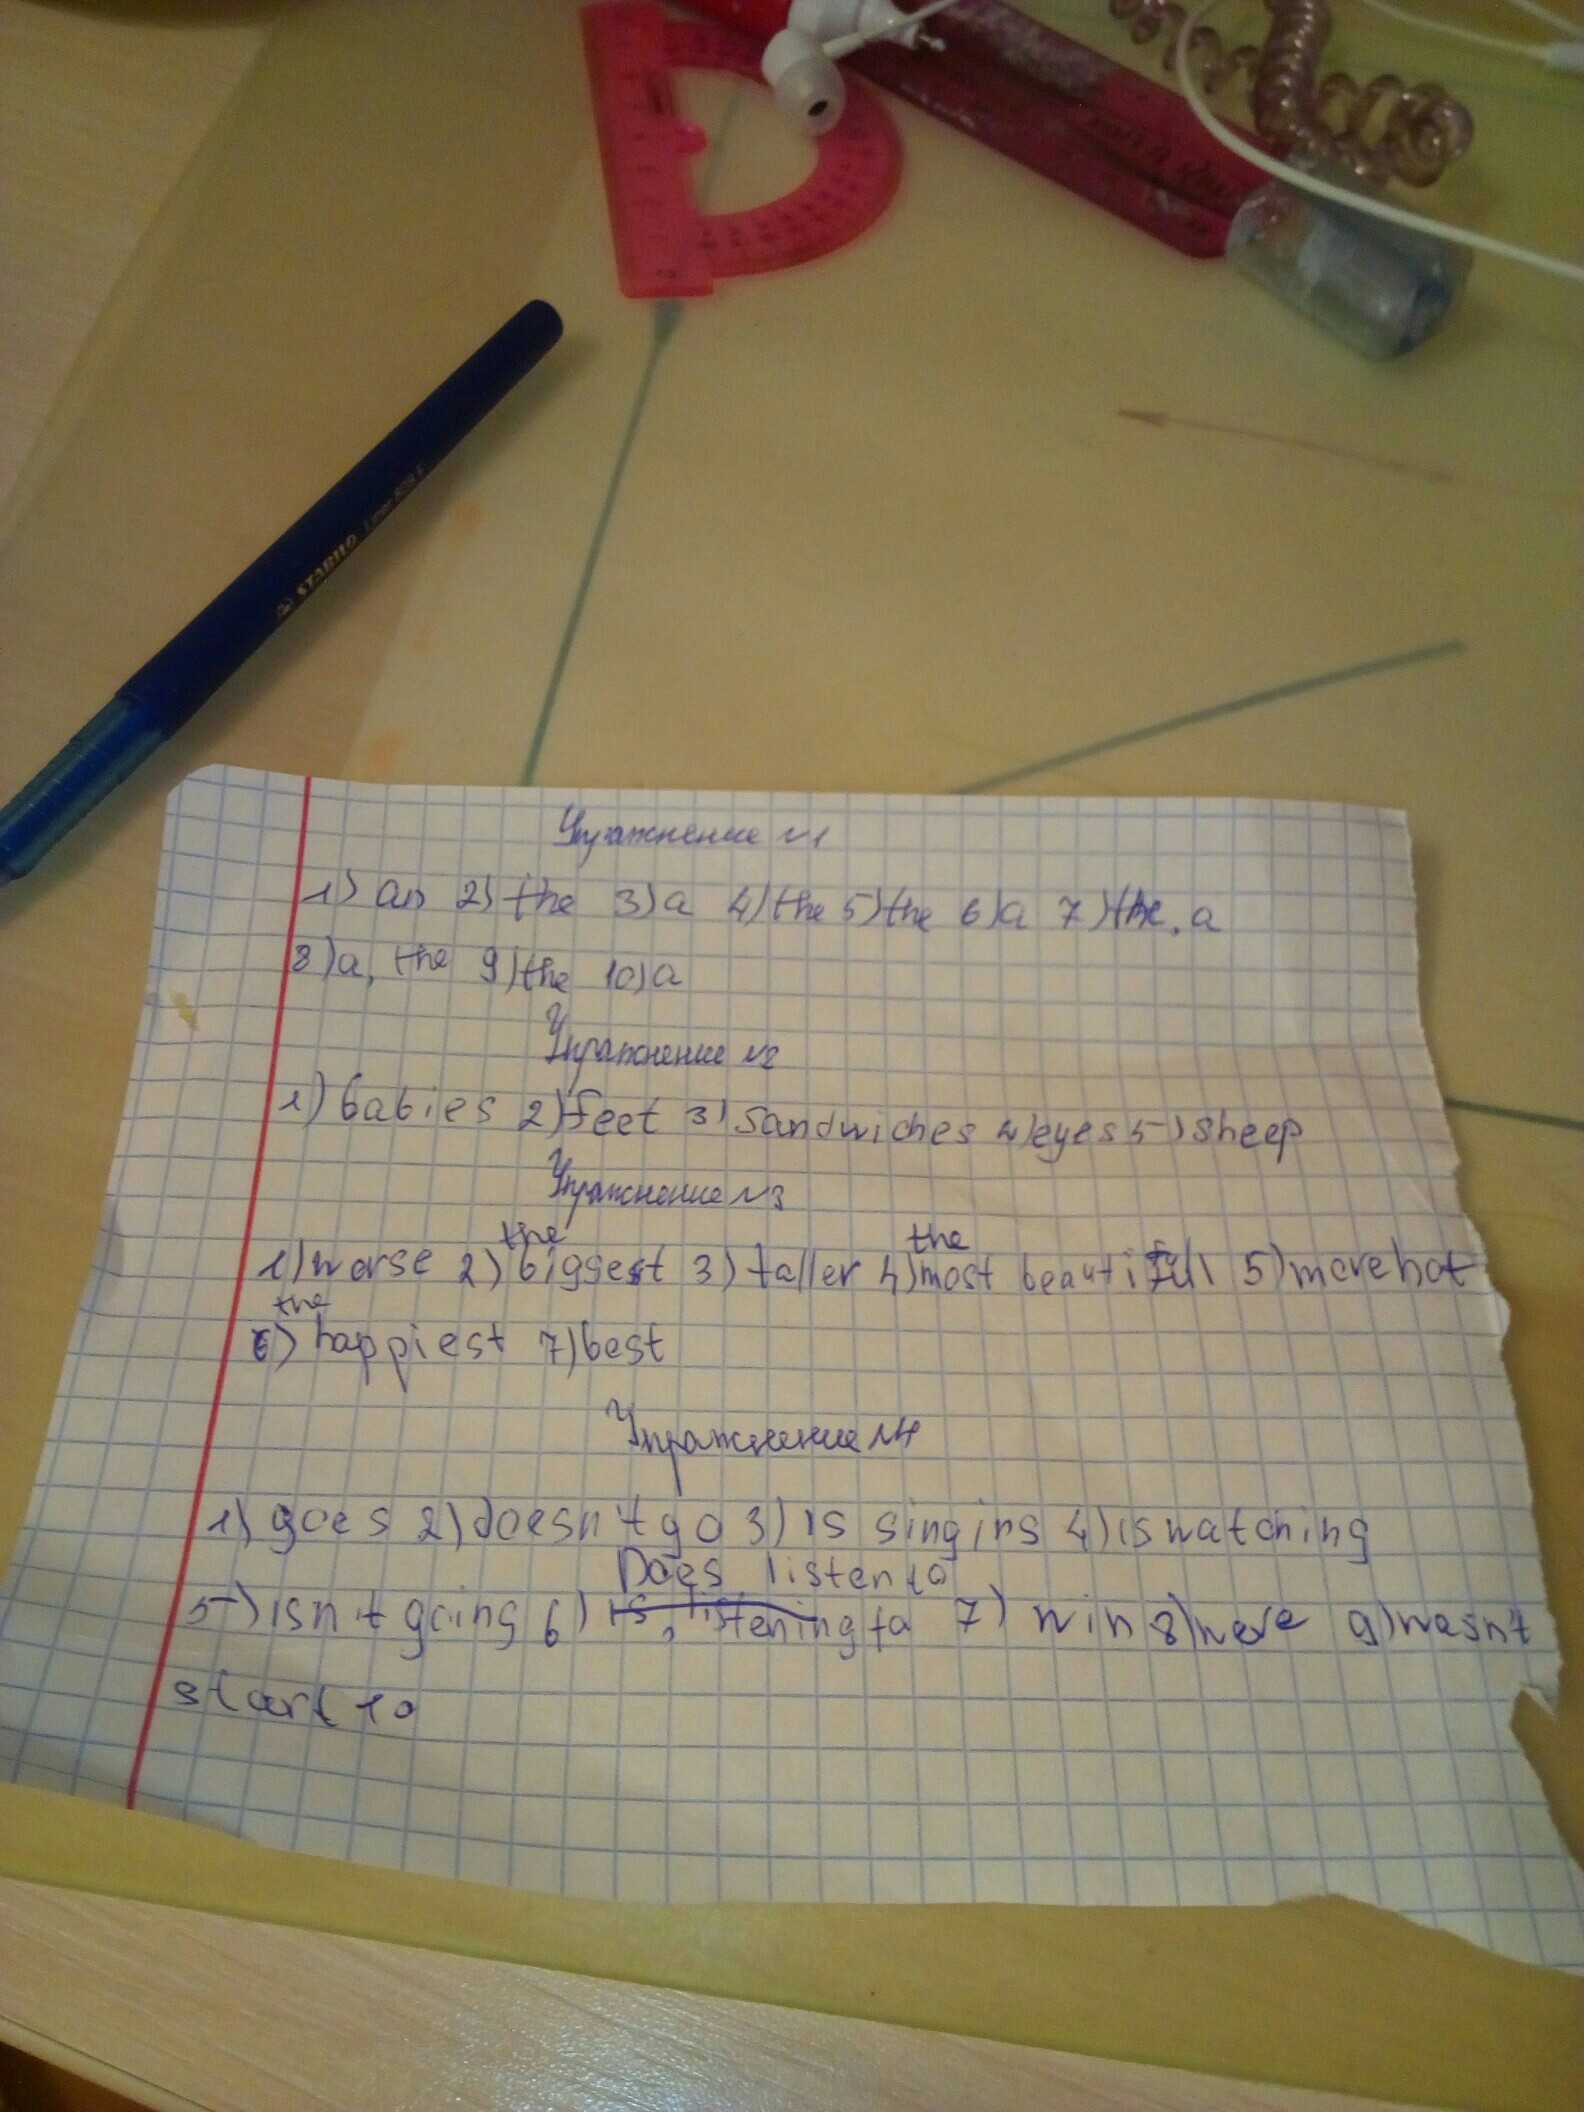 STABILO Liner 808 F
Упражнение №1
1) an 2) the 3) a 4) the 5) the 6) a 7) the, a
8) a, the 9) the 10) a
Упражнение №2
1) babies 2) feet 3) sandwiches 4) eyes 5) sheep
Упражнение №3
the the
1) worse 2) biggest 3) taller 4) most beautiful 5) more hot
the
6) happiest 7) best
Упражнение №4
1) goes 2) doesn't go 3) is singins 4) is watching
Does listen to
5) isn't going 6) is, listening to 7) win 8) were 9) wasn't
start to